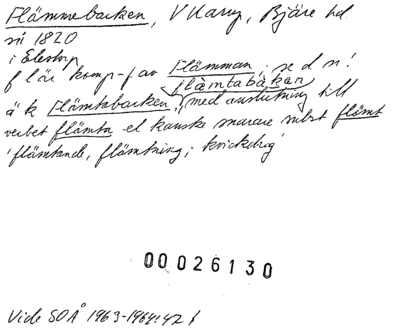 Flämmebacken, V Karup, Bjäre hd
nä 1820
i Elestorp
f lär komp-f av Flämman, se d n!
flämtabakan
ä k Flämtabacken, med anslutning till
verbet flämta el kanske snarare subst flämt
'flämtande, flämtning; knickdrag'
00026130
Vide SOÅ 1963-1964:42 f